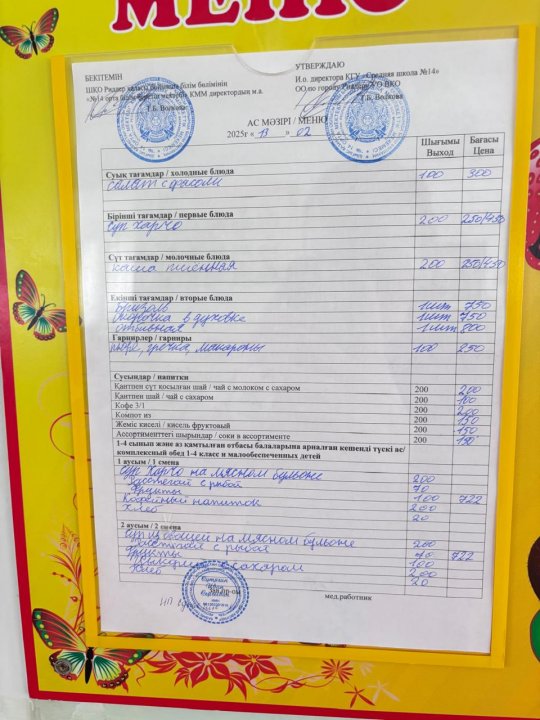 МЕНЮ
БЕКІТЕМІН
УТВЕРЖДАЮ
ШҚО Риддер қаласы бойынша білім бөлімінің
И.о. директора КГУ «Средняя школа №14»
«№14 орта білім беретін мектебі» КММ директордың м.а.
ОО по городу Риддеру УО ВКО
Т.Б. Волкова
Т.Б. Волкова
АС МӘЗІРІ / МЕНЮ
2025г « 13 » 02
Шығымы Выход
Бағасы Цена
Суық тағамдар / холодные блюда
салат с фасоли 100 300
Бірінші тағамдар / первые блюда
суп харчо 200 250/450
Сүт тағамдар / молочные блюда
каша пшенная 200 250/450
Екінші тағамдар / вторые блюда
бризоль 1шт 750
в духовке 1шт 750
отбивная 1шт 800
Гарнирлер / гарниры
пюре, гречка, макароны 100 250
Сусындар / напитки
Қантпен сүт қосылған шай / чай с молоком с сахаром 200 200
Қантпен шай / чай с сахаром 200 100
Кофе 3/1 200 200
Компот из 200 150
Жеміс киселі / кисель фруктовый 200 150
Ассорименттегі шырындар / соки в ассортименте 200 150
1-4 сынып және аз қамтылған отбасы балаларына арналған кешенді түскі ас/
комплексный обед 1-4 класс и малообеспеченных детей
1 ауысым / 1 смена
суп харчо на мясном бульоне 200
расстегай с рыбой 70
фрукты 100 722
Кофейный напиток 200
хлеб 20
2 ауысым / 2 смена
суп из овощей на мясном бульоне 200
расстегай с рыбой 70 722
фрукты 100
с сахаром 200
хлеб 20
ИП
мед.работник